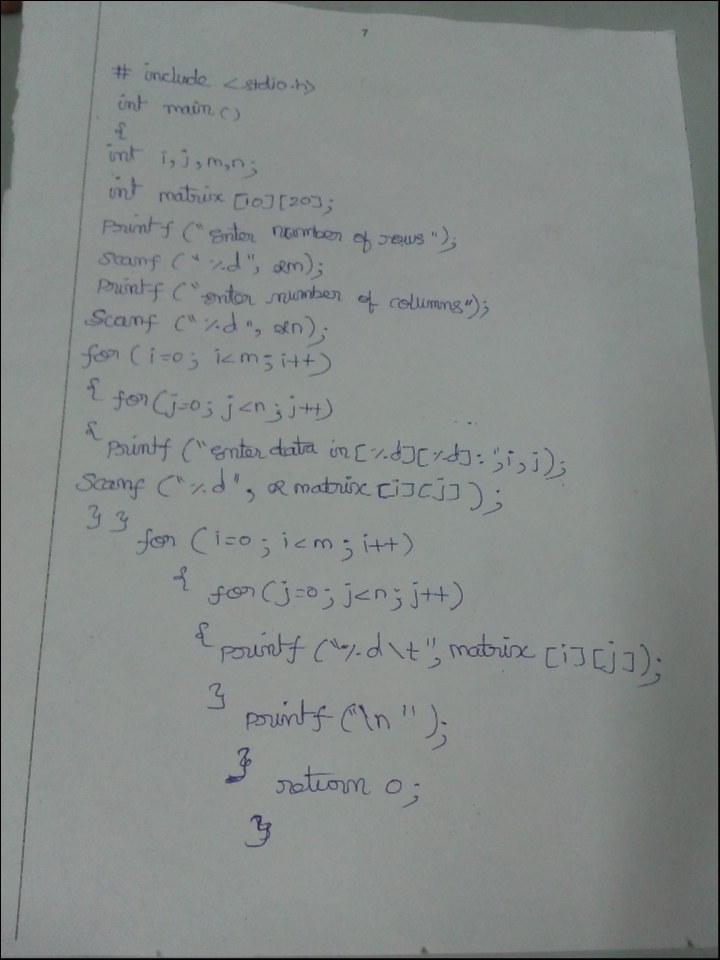 7
# include <stdio.h>
int main()
{
int i, j, m, n;
int matrix [10][20];
printf ("Enter number of rows");
scanf ("%d", &m);
printf ("enter number of columns");
Scanf ("%d", &n);
for (i=0; i<m; i++)
{ for (j=0; j<n; j++)
{ printf ("Enter data in [%d][%d]:", i, j);
Scanf ("%d", & matrix [i][j]);
} }
for (i=0; i<m; i++)
{ for (j=0; j<n; j++)
{ printf ("%d\t", matrix [i][j]);
} printf ("\n");
} return 0;
}